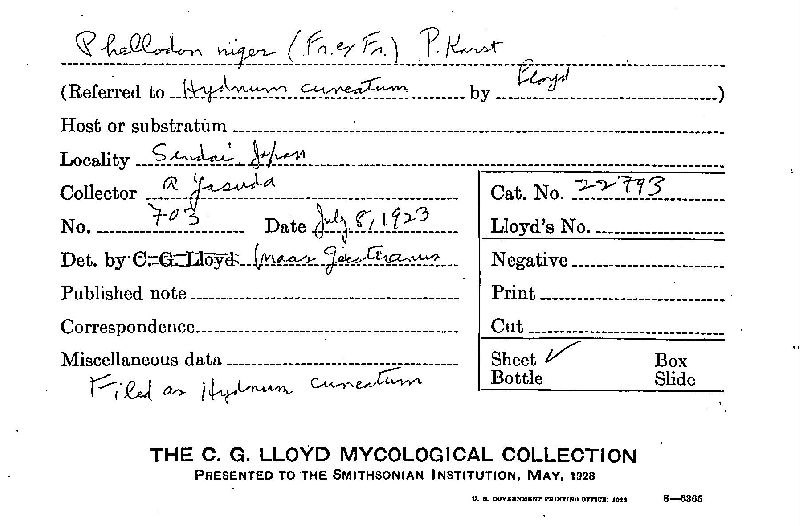 Phellodon niger (Fr. ex Fr.) P. Karst
(Referred to Hydnum cuneatum by Lloyd)
Host or substratum
Locality Sendai Japan
Collector A Yasuda
No. 703 Date July 8, 1923
Det. by C. G. Lloyd Maas Geesteranus
Published note
Correspondence
Miscellaneous data
Filed as Hydnum cuneatum
Cat. No. 22793
Lloyd's No.
Negative
Print
Cut
Sheet ✓ Box
Bottle Slide
THE C. G. LLOYD MYCOLOGICAL COLLECTION
PRESENTED TO THE SMITHSONIAN INSTITUTION, MAY, 1928
U. S. GOVERNMENT PRINTING OFFICE: 1928 8—6365